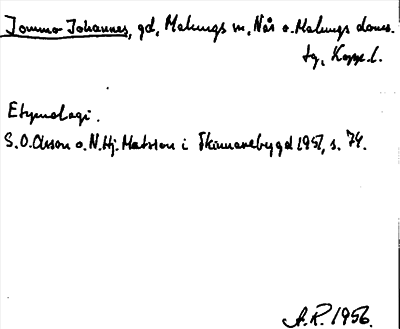 Jommo Johannes, gd, Malungs sn, Nås o. Malungs doms.
tg, Kopp. l.
Etymologi.
S.O. Olsson o. N. Hj. Matsson i Skinnarebygd 1951, s. 74.
A.R. 1956.